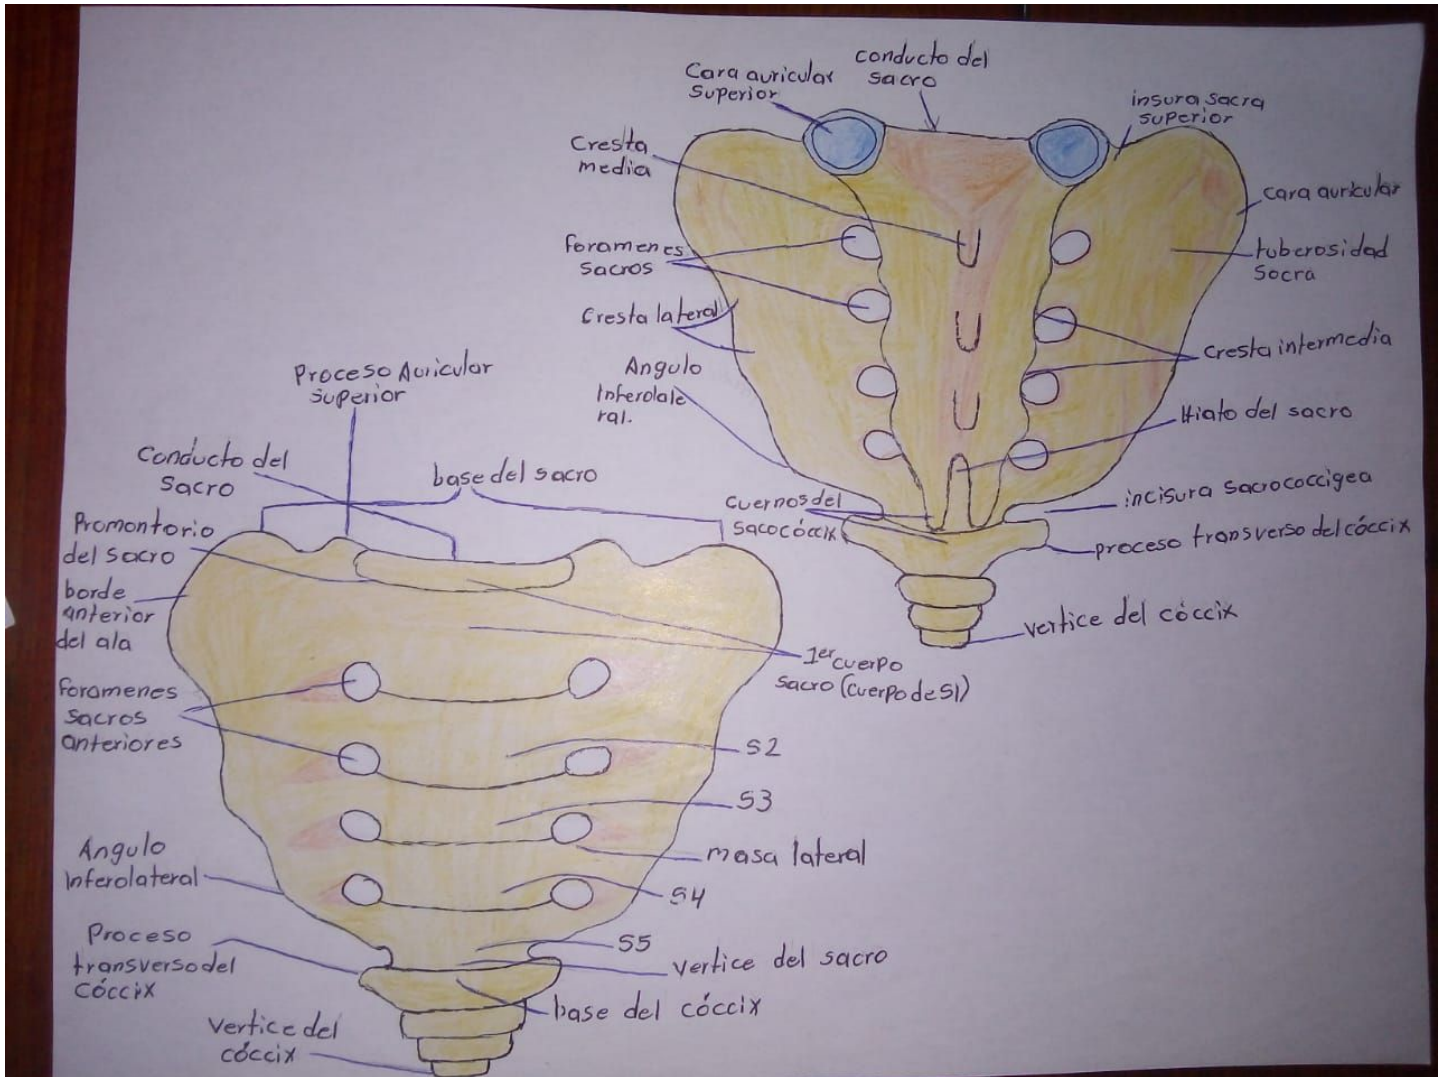 Cara auricular
Superior
conducto del
sacro
insura sacra
superior
Cresta
media
cara auricular
foramenes
sacros
tuberosidad
Socra
Cresta lateral
cresta intermedia
Angulo
Inferolate
ral.
Hiato del sacro
cuernos del
sacocóccix
incisura sacrococcigea
proceso transverso del cóccix
vertice del cóccix
Proceso Auricular
superior
Conducto del
sacro
base del sacro
Promontorio
del sacro
borde
anterior
del ala
1er cuerpo
sacro (cuerpo de S1)
foramenes
sacros
anteriores
S2
S3
masa lateral
Angulo
Inferolateral
S4
Proceso
transverso del
cóccix
S5
vertice del sacro
base del cóccix
vertice del
cóccix